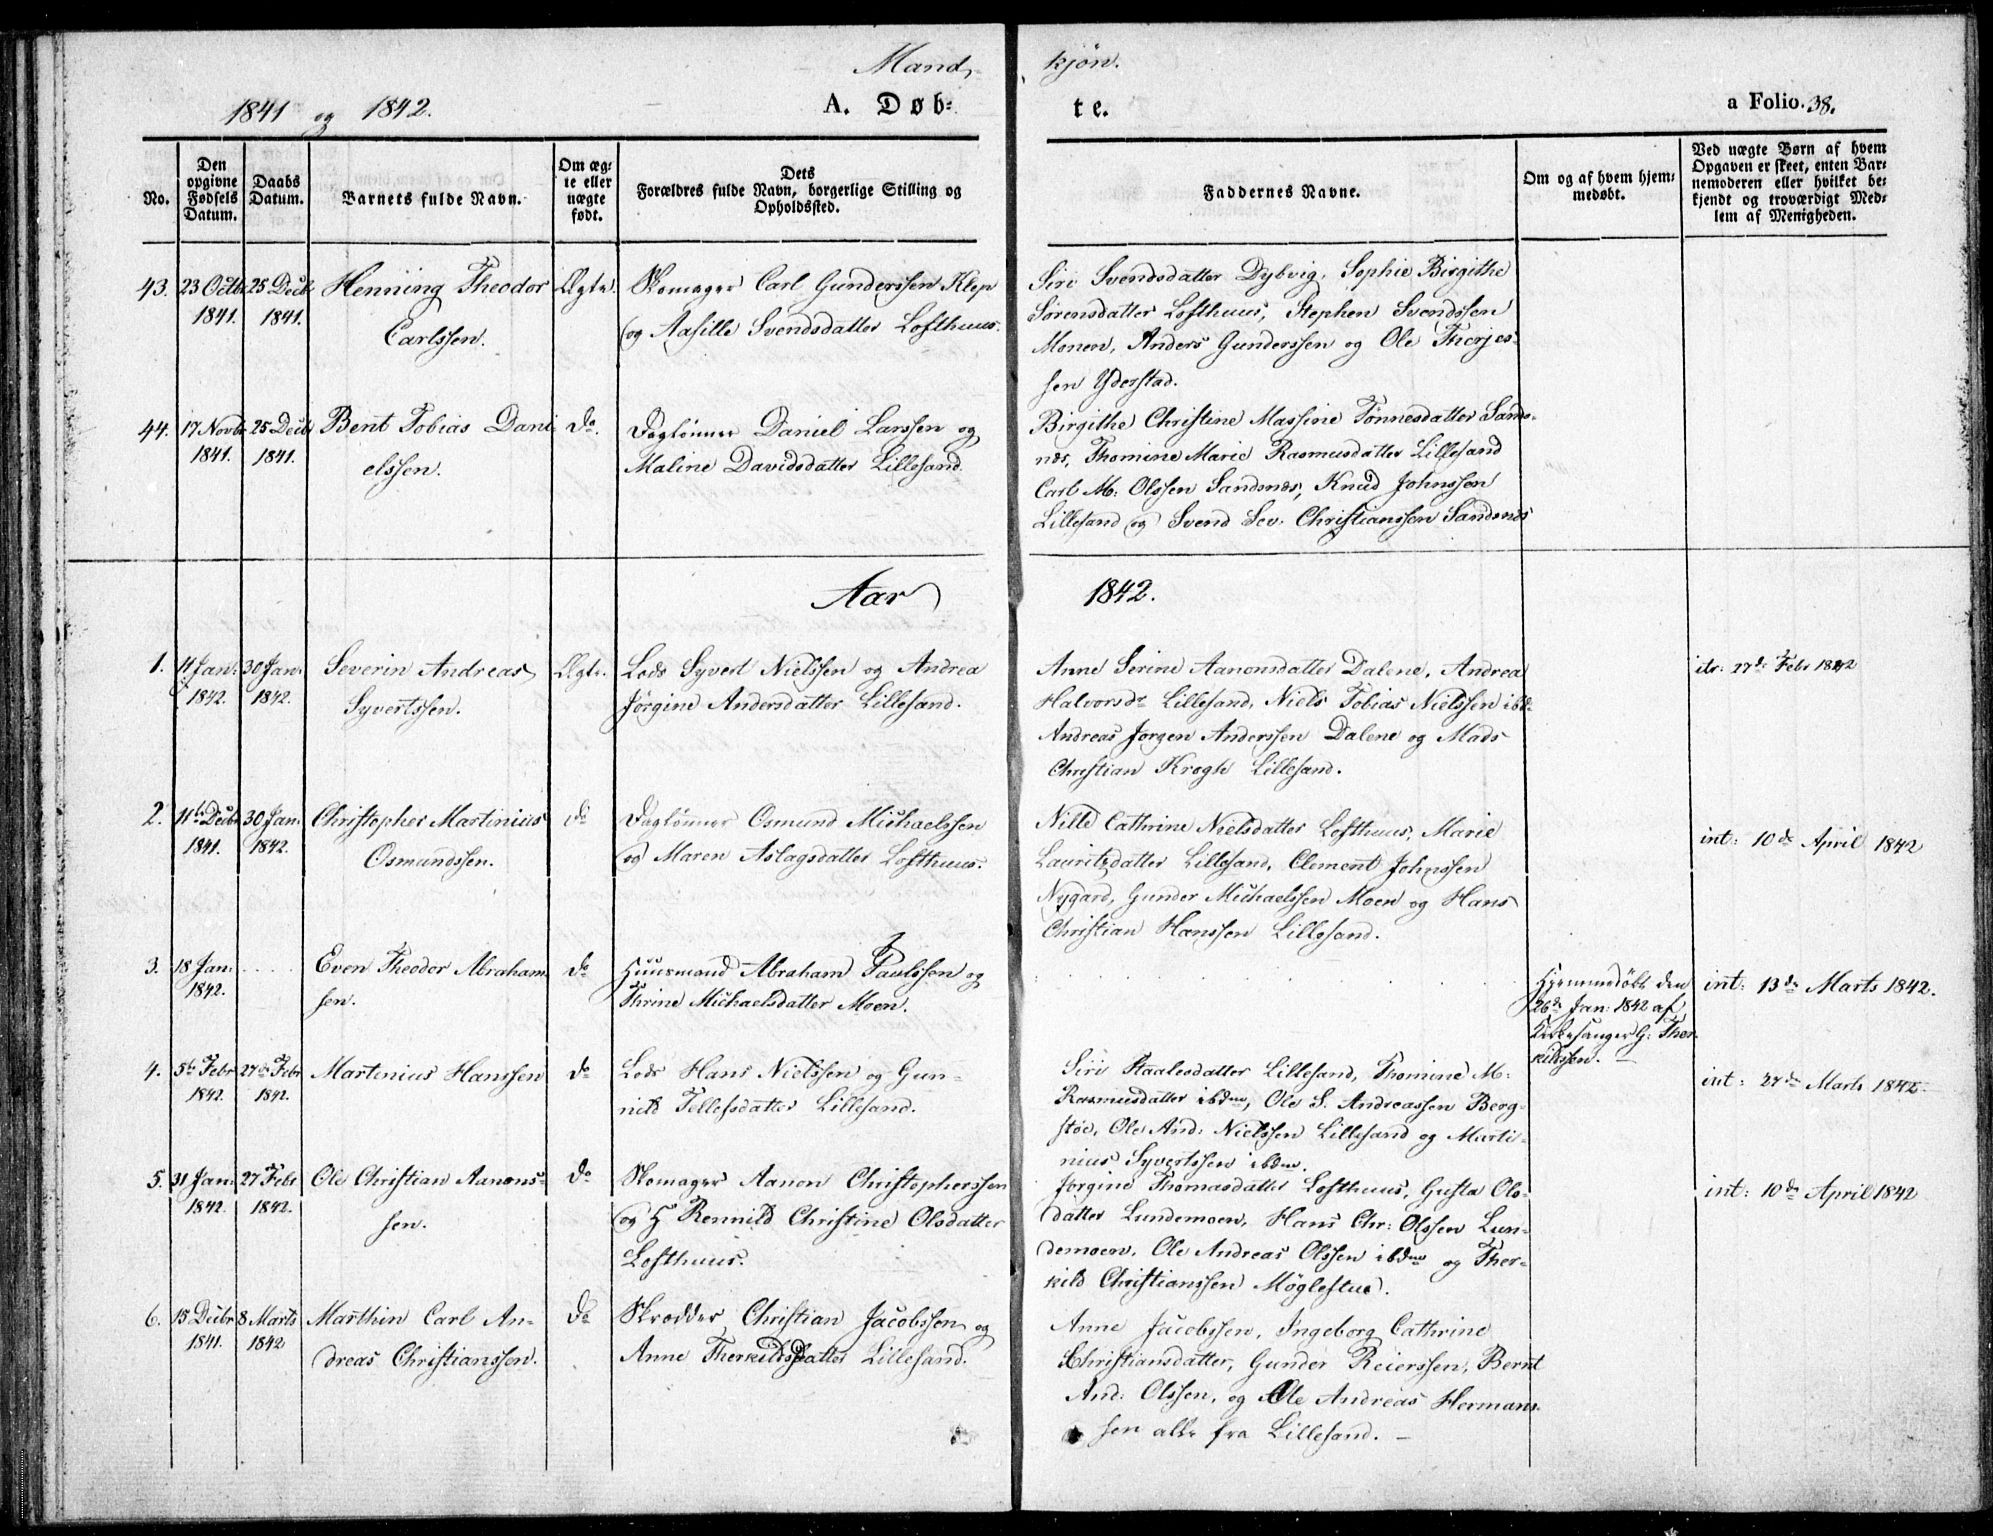 Mand-
kjøn.
1841 og 1842.
A. Døb-
te.
a Folio. 38.
No.
Den opgivne Fødsels Datum.
Daabs Datum.
Barnets fulde Navn.
Om ægte eller nægte født.
Dets
Forældres fulde Navn, borgerlige Stilling og
Opholdssted.
Faddernes Navne.
Om og af hvem hjem-
medøbt.
Ved nægte Børn af hvem
Opgaven er skeet, enten Bar-
nemoderen eller hvilket be-
kjendt og troværdigt Med-
lem af Menigheden.
43. 23 Octbr 1841. 25 Decbr 1841.
Henning Theodor
Carlssen.
Ægte.
Skomager Carl Gunderssen Klep
og Aasille Svendsdatter Lofthuus.
Siri Svendsdatter Dybvig, Sophie Birgithe
Sørensdatter Lofthuus, Stephen Svendssen
Monen, Anders Gunderssen og Ole Therjes-
sen Yderstad.
44. 17 Novbr 1841. 25 Decbr 1841.
Bent Tobias Dani
elssen.
do.
Daglønner Daniel Larssen og
Maline Davidsdatter Lillesand.
Birgithe Christine Massine Tønnesdatter Sands-
næs, Thomine Marie Rasmusdatter Lillesand
Carl M: Olssen Sandsnæs, Knud Johnssen
Lillesand og Svend Sev. Christianssen Sandsnæs
Aar 1842.
1. 11 Jan: 1842. 30 Jan: 1842.
Severin Andreas
Syvertssen.
Ægte.
Lods Syvert Nielssen og Andrea
Jørgine Andersdatter Lillesand.
Anne Serine Aanonsdatter Dalene, Andrea
Halvorsdr Lillesand, Niels Tobias Nielssen ibd.
Andreas Jørgen Anderssen Dalene og Mads
Christian Krogh Lillesand.
27de Febr 1842
2. 11te Decbr 1841. 30 Jan: 1842.
Christopher Martinius
Osmundssen.
do
Daglønner Osmund Michaelssen
og Maren Aslagsdatter Lofthuus.
Nille Cathrine Nielsdatter Lofthuus, Marie
Lauritsdatter Lillesand, Clement Johnssen
Nygard, Gunder Michaelssen Moen og Hans
Christian Hanssen Lillesand.
int: 10de April 1842
3. 18 Jan: 1842. . . . .
Even Theodor Abraham
sen.
do
Huusmand Abraham Paulssen og
Thrine Michaelsdatter Moen.
Hjemmedøbt den
26de Jan: 1842 af
Kirkesanger G: Ther-
kildssen. —
int: 13de Marts 1842.
4. 5te Febr 1842. 27de Febr 1842.
Martinius Hanssen
do
Lods Hans Nielssen og Gun-
nild Tellefsdatter Lillesand.
Siri Staalesdatter Lillesand, Thomine M.
Rasmusdatter ibdm, Ole S. Andreassen Berg-
støe, Ole And: Nielssen Lillesand og Marti-
nius Syvertssen ibdm.
int: 27de Marts 1842.
5. 31 Jan: 1842. 27 Febr 1842.
Ole Christian Aanons-
sen.
do
Skomager Aanon Christopherssen
og H Rennild Christine Olsdatter
Lofthuus.
Jørgine Thomasdatter Lofthuus, Gusta Ols-
datter Lundemoen, Hans Chr: Olssen Lun-
demoen, Ole Andreas Olssen ibdm og Ther-
kild Christianssen Møglestue.
int: 10de April 1842
6. 15 Decbr 1841. 8 Marts 1842
Marthin Carl An-
dreas Christianssen.
do
Skrædder Christian Jacobssen og
Anne Therkildsdatter Lillesand.
Anne Jacobssen, Ingeborg Cathrine
Christiansdatter, Gunder Reierssen, Bernt
And: Olssen, og Ole Andreas Hermans-
sen alle fra Lillesand. —